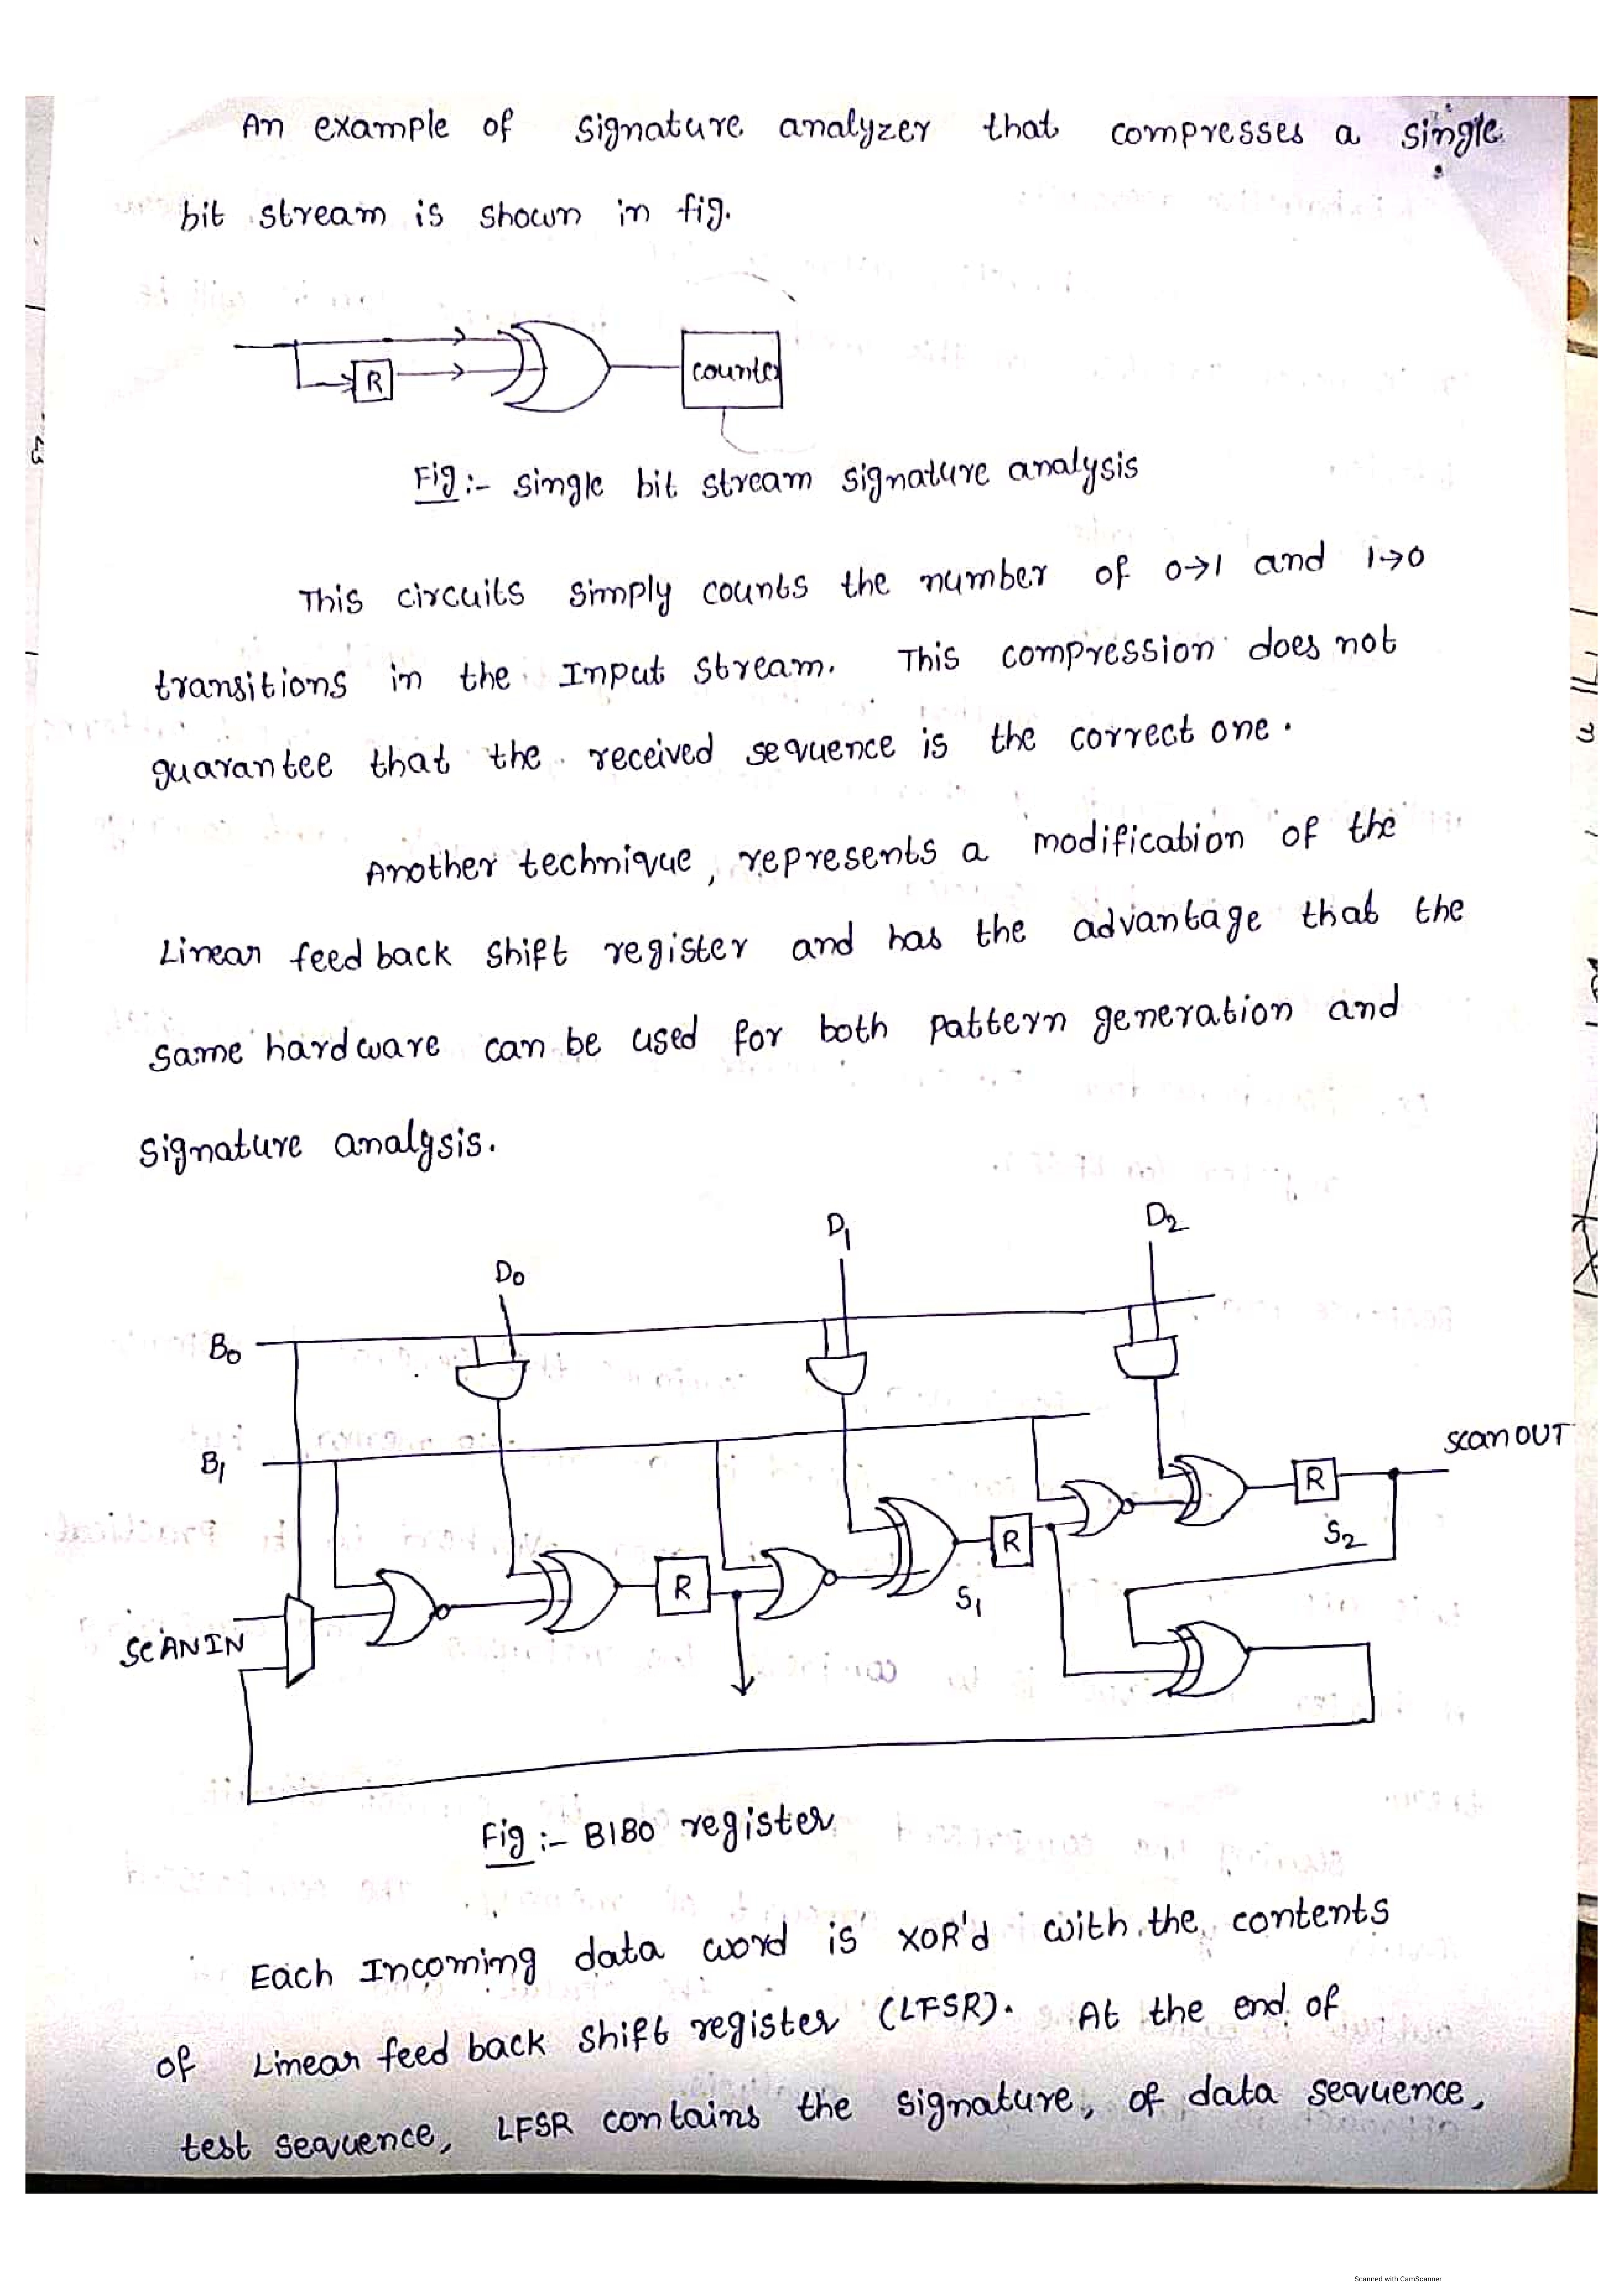 An example of signature analyzer that compresses a single
bit stream is shown in fig.
R
counter
Fig :- single bit stream signature analysis
This circuits simply counts the number of 0→1 and 1→0
transitions in the Input stream. This compression does not
guarantee that the received sequence is the correct one.
Another technique, represents a modification of the
Linear feed back shift register and has the advantage that the
same hardware can be used for both pattern generation and
signature analysis.
D0 D1 D2
B0
B1
scanOUT
R
R
R
S2
S1
SCANIN
Fig :- BIBO register
Each Incoming data word is XOR'd with the contents
of Linear feed back shift register (LFSR). At the end of
test sequence, LFSR contains the signature, of data sequence,
Scanned with CamScanner